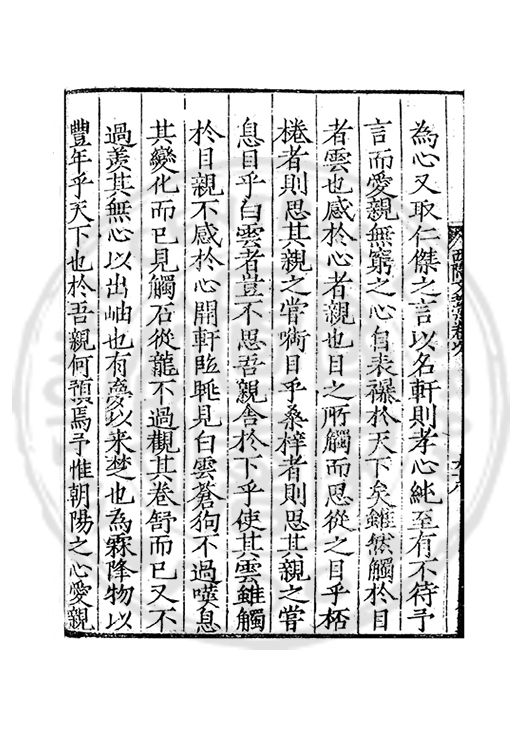 為心又取仁傑之言以名軒則孝心純至有不待予
言而愛親無窮之心自表襮於天下矣雖然觸於目
者雲也感於心者親也目之所觸而思從之目乎桮
棬者則思其親之嘗啣目乎桑梓者則思其親之嘗
息目乎白雲者豈不思吾親舎於下乎使其雲雖觸
於目親不感於心開軒臨眺見白雲蒼狗不過嘆息
其變化而已見觸石從龍不過觀其卷舒而已又不
過羨其無心以出岫也有處以来埜也為霖降物以
豐年乎天下也於吾親何預焉予惟朝陽之心愛親